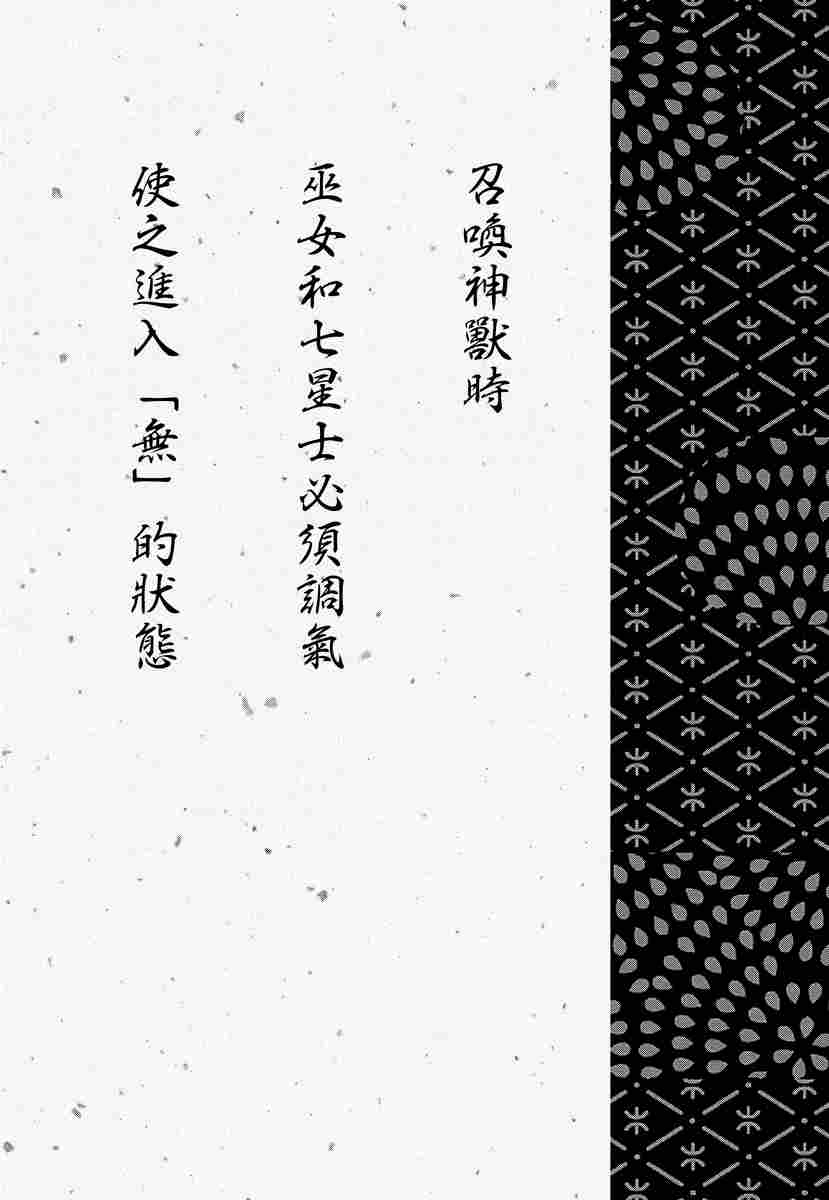 召喚神獸時
巫女和七星士必須調氣
使之進入「無」的狀態